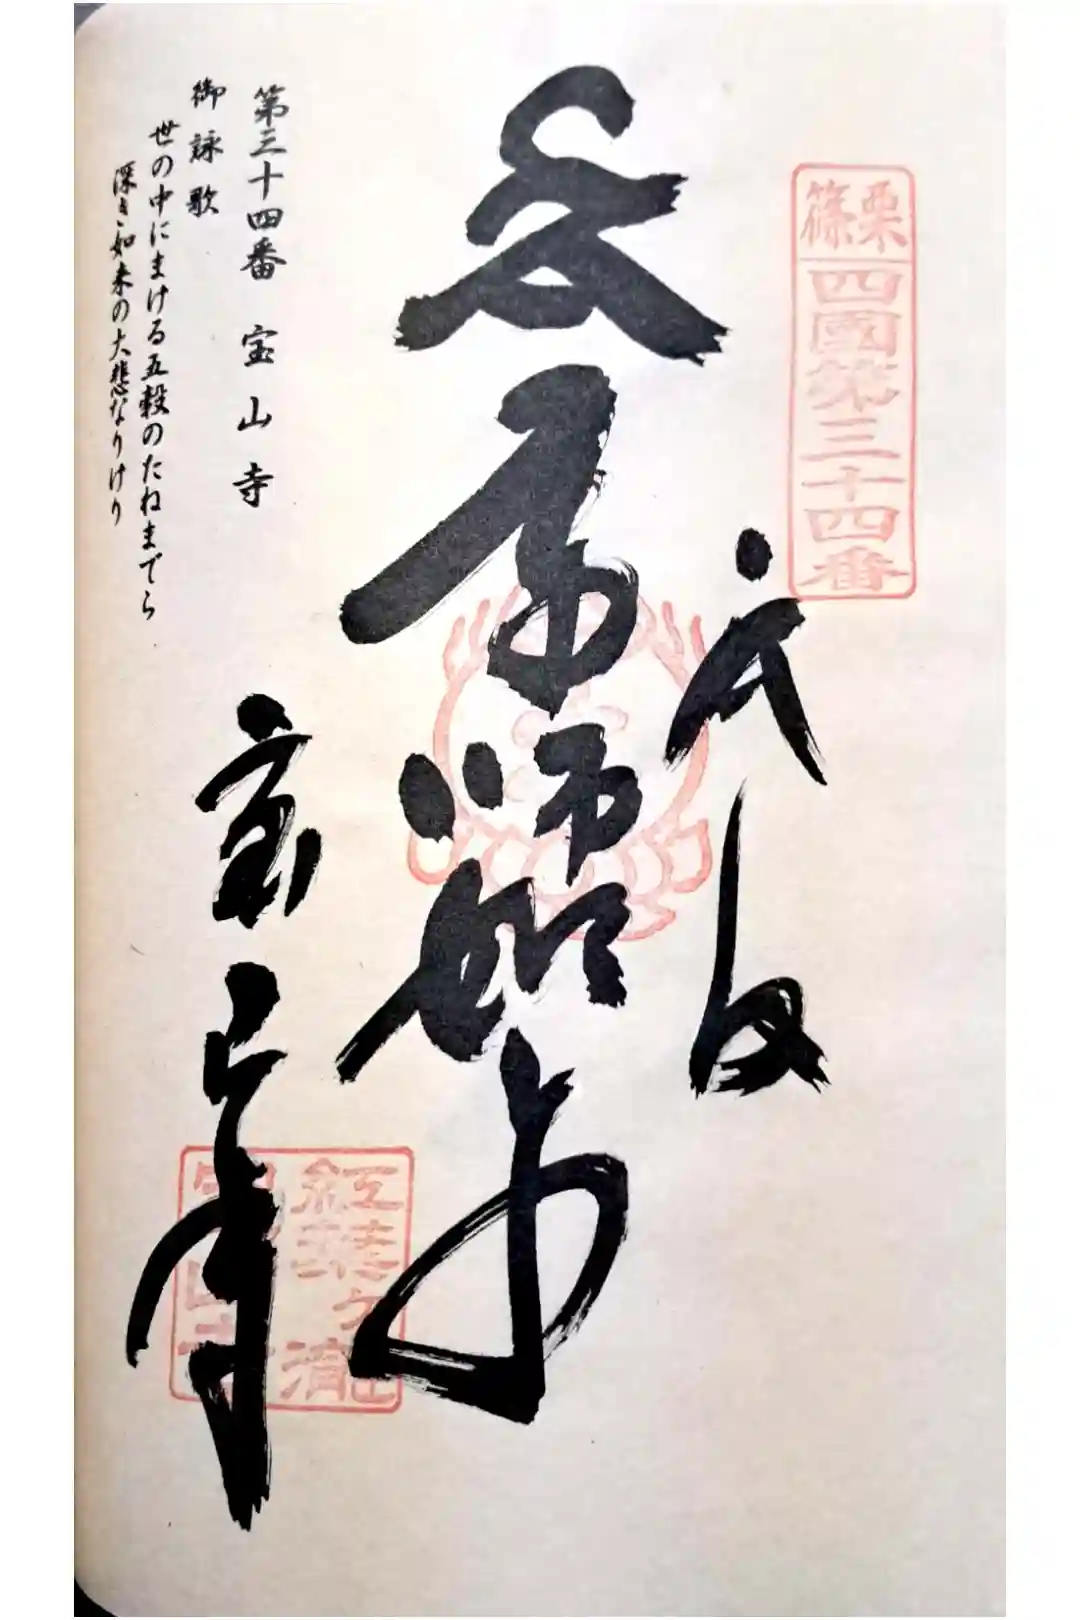 栗篠
四國第三十四番
奉納
薬師如来
宝山寺
紅葉ヶ瀧
宝山寺
第三十四番 宝山寺
御詠歌
世の中にまける五穀のたねまでら
深き如来の大悲なりけり